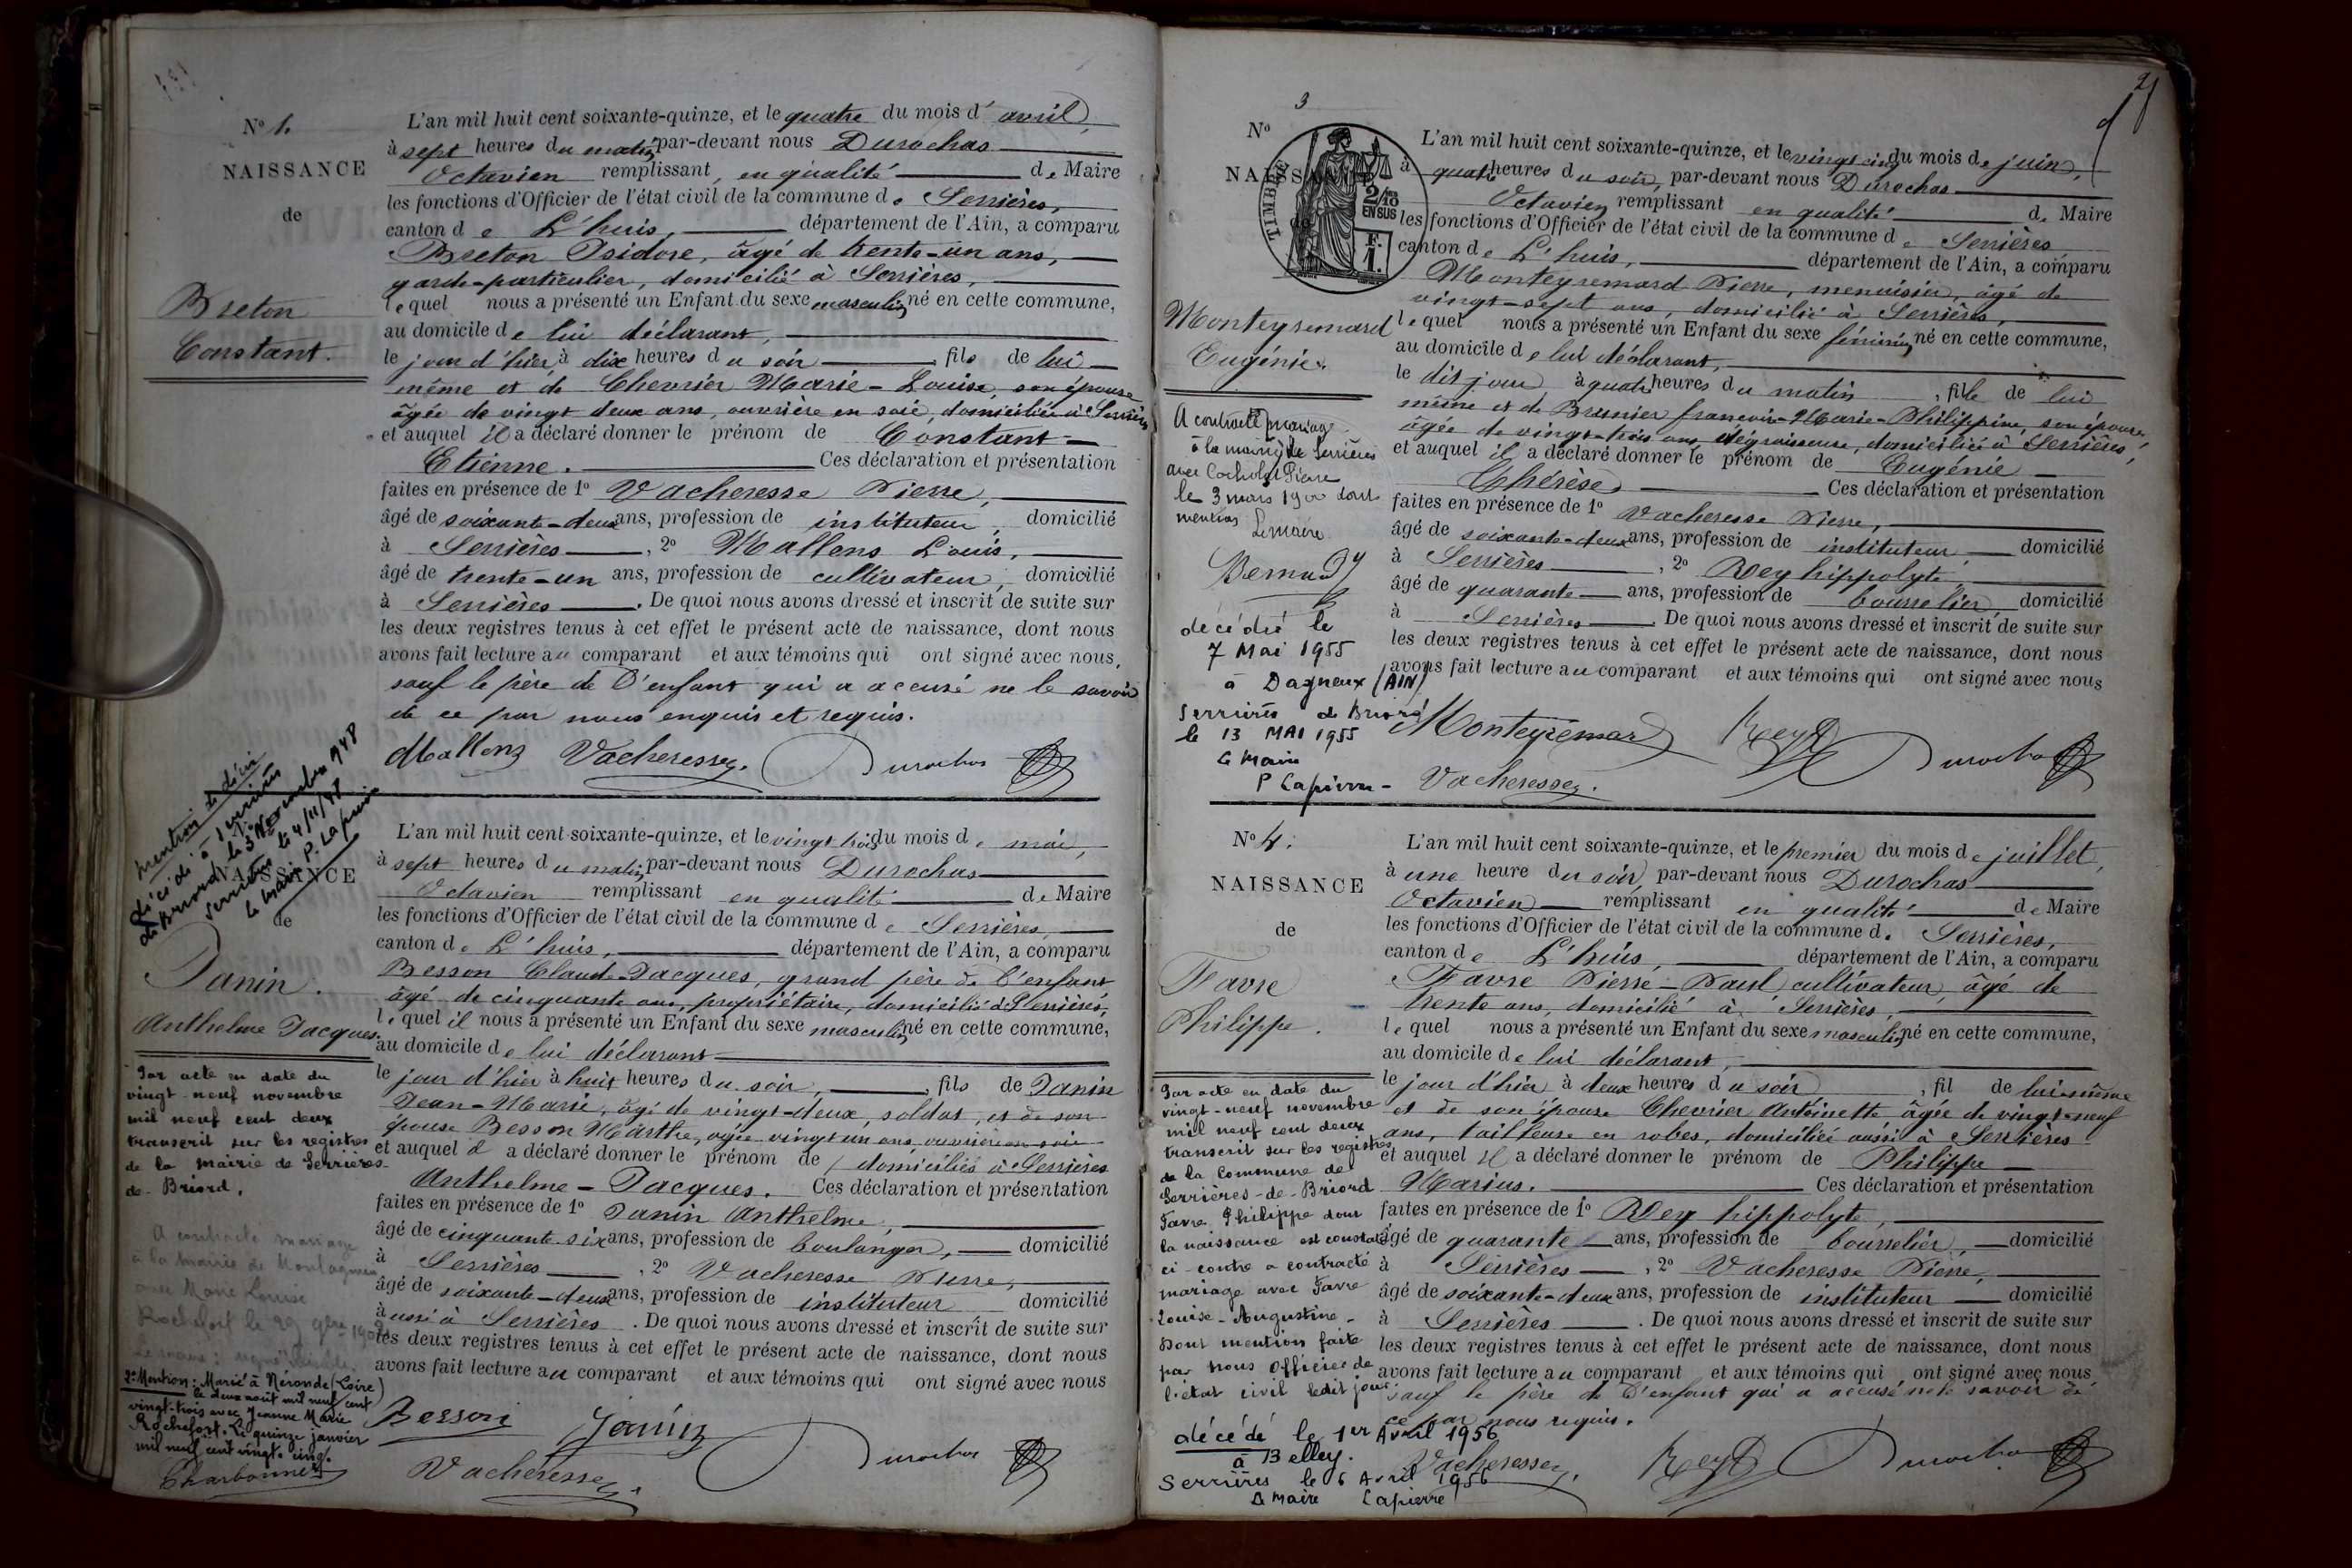 N° 1.
NAISSANCE
de
Breton
Constant.
L'an mil huit cent soixante-quinze, et le quatre du mois d' avril,
à sept heures du matin par-devant nous Durochas
Octavien remplissant, en qualité de Maire
les fonctions d'Officier de l'état civil de la commune de Serrières,
canton de L'huis, département de l'Ain, a comparu
Breton Isidore, âgé de trente-un ans,
garde-particulier, domicilié à Serrières,
lequel nous a présenté un Enfant du sexe masculin né en cette commune,
au domicile de lui déclarant,
le jour d'hier, à dix heures du soir fils de lui
même et de Chevrier Marie-Louise, son épouse
âgée de vingt deux ans, ouvrière en soie, domiciliée à Serrières
et auquel il a déclaré donner le prénom de Constant
Etienne. Ces déclaration et présentation
faites en présence de 1° Vacheresse Pierre,
âgé de soixante-deux ans, profession de instituteur, domicilié
à Serrières, 2° Mallens Louis,
âgé de trente-un ans, profession de cultivateur, domicilié
à Serrières. De quoi nous avons dressé et inscrit de suite sur
les deux registres tenus à cet effet le présent acte de naissance, dont nous
avons fait lecture au comparant et aux témoins qui ont signé avec nous,
sauf le père de l'enfant qui a accusé ne le savoir
de ce par nous enquis et requis.
Mallens Vacheresse. Durochas
mention de décès
décédé à Serrières
de Briord le 3 Novembre 1948
Serrières le 4/11/48
le maire P. Lapierre
NAISSANCE
de
Janin.
Anthelme Jacques.
Par acte en date du
vingt-neuf novembre
mil neuf cent deux
transcrit sur les registres
de la mairie de Serrières-
de-Briord,
A contracté mariage
à la mairie de Montagnieu
avec Marie Louise
Rochefort le 29 9bre 1902
Le maire: signé
2e Mention: Marié à Néronde (Loire)
le deux août mil neuf cent
vingt-trois avec Jeanne Marie
Rochefort. Le quinze janvier
mil neuf cent vingt-cinq.
Charbonnet
L'an mil huit cent soixante-quinze, et le vingt trois du mois de mai,
à sept heures du matin par-devant nous Durochas
Octavien remplissant en qualité de Maire
les fonctions d'Officier de l'état civil de la commune de Serrières,
canton de L'huis, département de l'Ain, a comparu
Besson Claude-Jacques, grand père de l'enfant
âgé de cinquante ans, propriétaire, domicilié à Serrières,
lequel il nous a présenté un Enfant du sexe masculin né en cette commune,
au domicile de lui déclarant
le jour d'hier à huit heures du soir, fils de Janin
Jean-Marie, âgé de vingt-deux, soldat, et de son
épouse Besson Marthe, âgée vingt un ans, ouvrière en soie
et auquel il a déclaré donner le prénom de / domiciliés à Serrières
Anthelme-Jacques. Ces déclaration et présentation
faites en présence de 1° Janin Anthelme,
âgé de cinquante-six ans, profession de boulanger, domicilié
à Serrières, 2° Vacheresse Pierre,
âgé de soixante-deux ans, profession de instituteur domicilié
aussi à Serrières. De quoi nous avons dressé et inscrit de suite sur
les deux registres tenus à cet effet le présent acte de naissance, dont nous
avons fait lecture au comparant et aux témoins qui ont signé avec nous
Besson Janin Durochas
Vacheresse.
2
3
N°
NAISSANCE
de
TIMBRE
2/10
EN SUS
F.
1.
Monteyremard
Eugénie.
A contracté mariage
à la mairie de Serrières
avec Cocholat Pierre
le 3 mars 1900 dont
mention
Le maire
Bernady
décédée le
7 Mai 1955
à Dagneux (AIN)
Serrières de Briord
le 13 MAI 1955
Le Maire
P Lapierre
L'an mil huit cent soixante-quinze, et le vingt cinq du mois de juin,
à quatre heures du soir, par-devant nous Durochas
Octavien remplissant en qualité de Maire
les fonctions d'Officier de l'état civil de la commune de Serrières
canton de L'huis, département de l'Ain, a comparu
Monteyremard Pierre, menuisier, âgé de
vingt-sept ans, domicilié à Serrières,
lequel nous a présenté un Enfant du sexe féminin né en cette commune,
au domicile de lui déclarant,
le dit jour à quatre heures du matin, fille de lui
même et de Brunier françoise-Marie-Philippine, son épouse,
âgée de vingt-trois ans, dégraisseuse, domiciliée à Serrières,
et auquel il a déclaré donner le prénom de Eugénie
Thérèse. Ces déclaration et présentation
faites en présence de 1° Vacheresse Pierre,
âgé de soixante-deux ans, profession de instituteur, domicilié
à Serrières, 2° Rey hippolyte
âgé de quarante ans, profession de bourrelier, domicilié
à Serrières. De quoi nous avons dressé et inscrit de suite sur
les deux registres tenus à cet effet le présent acte de naissance, dont nous
avons fait lecture au comparant et aux témoins qui ont signé avec nous
Monteyremard Rey Durochas
Vacheresse.
N° 4.
NAISSANCE
de
Favre
Philippe.
Par acte en date du
vingt-neuf novembre
mil neuf cent deux
transcrit sur les registres
de la commune de
Serrières-de-Briord
Favre Philippe dont
la naissance est constatée
ci-contre a contracté
mariage avec Favre
Louise-Augustine-
Dont mention faite
par nous officier de
l'état civil ledit jour.
décédé le 1er Avril 1956
à Belley.
Serrières le 6 Avril 1956
Le maire Lapierre
L'an mil huit cent soixante-quinze, et le premier du mois de juillet,
à une heure du soir, par-devant nous Durochas
Octavien remplissant en qualité de Maire
les fonctions d'Officier de l'état civil de la commune de Serrières,
canton de L'huis, département de l'Ain, a comparu
Favre Pierre-Paul cultivateur, âgé de
trente ans, domicilié à Serrières,
lequel nous a présenté un Enfant du sexe masculin, né en cette commune,
au domicile de lui déclarant,
le jour d'hier à deux heures du soir, fil de lui-même
et de son épouse Chevrier Antoinette âgée de vingt-neuf
ans, tailleuse en robes, domiciliée aussi à Serrières
et auquel il a déclaré donner le prénom de Philippe
Marius. Ces déclaration et présentation
faites en présence de 1° Rey hippolyte,
âgé de quarante ans, profession de bourrelier, domicilié
à Serrières, 2° Vacheresse Pierre,
âgé de soixante-deux ans, profession de instituteur domicilié
à Serrières. De quoi nous avons dressé et inscrit de suite sur
les deux registres tenus à cet effet le présent acte de naissance, dont nous
avons fait lecture au comparant et aux témoins qui ont signé avec nous
sauf le père de l'enfant qui a accusé ne le savoir de
ce par nous requis.
Vacheresse. Rey Durochas